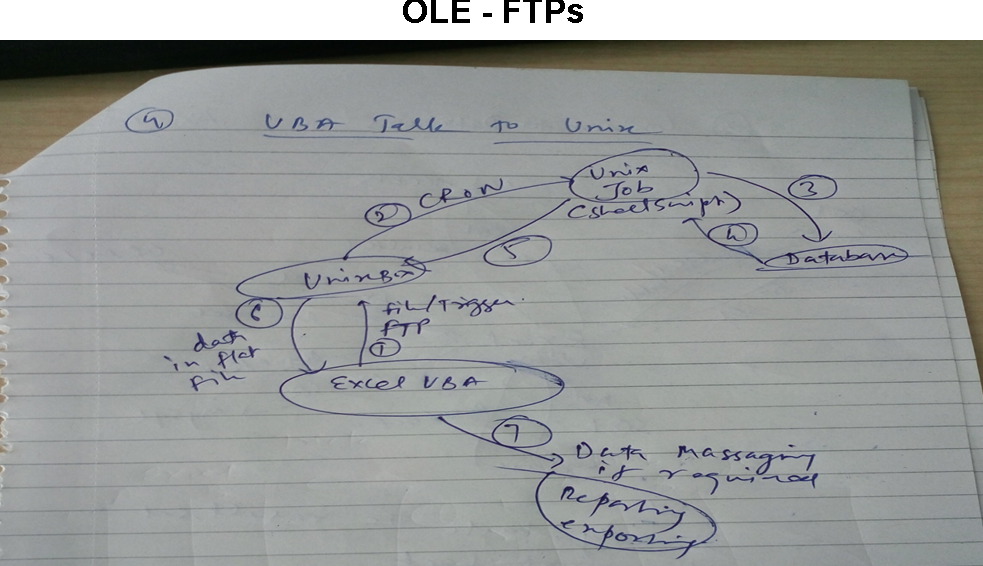 OLE - FTPs
4 VBA Talk to Unix
Unix
Job
(Shellscript)
2 CRON
3
4
5
Database
UnixBox
6
file/Trigger
FTP
1
data
in flat
file
Excel VBA
7
Data Massaging
if required
Reporting
exporting